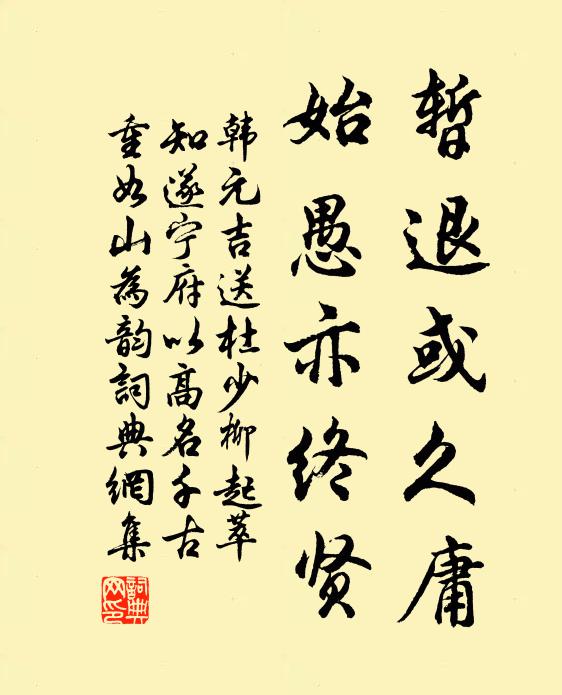 暂退或久庸
始愚亦终贤
韩元吉送杜少柳起萃
知遂宁府以高名千古
重如山为韵詞典網集
詞典网印